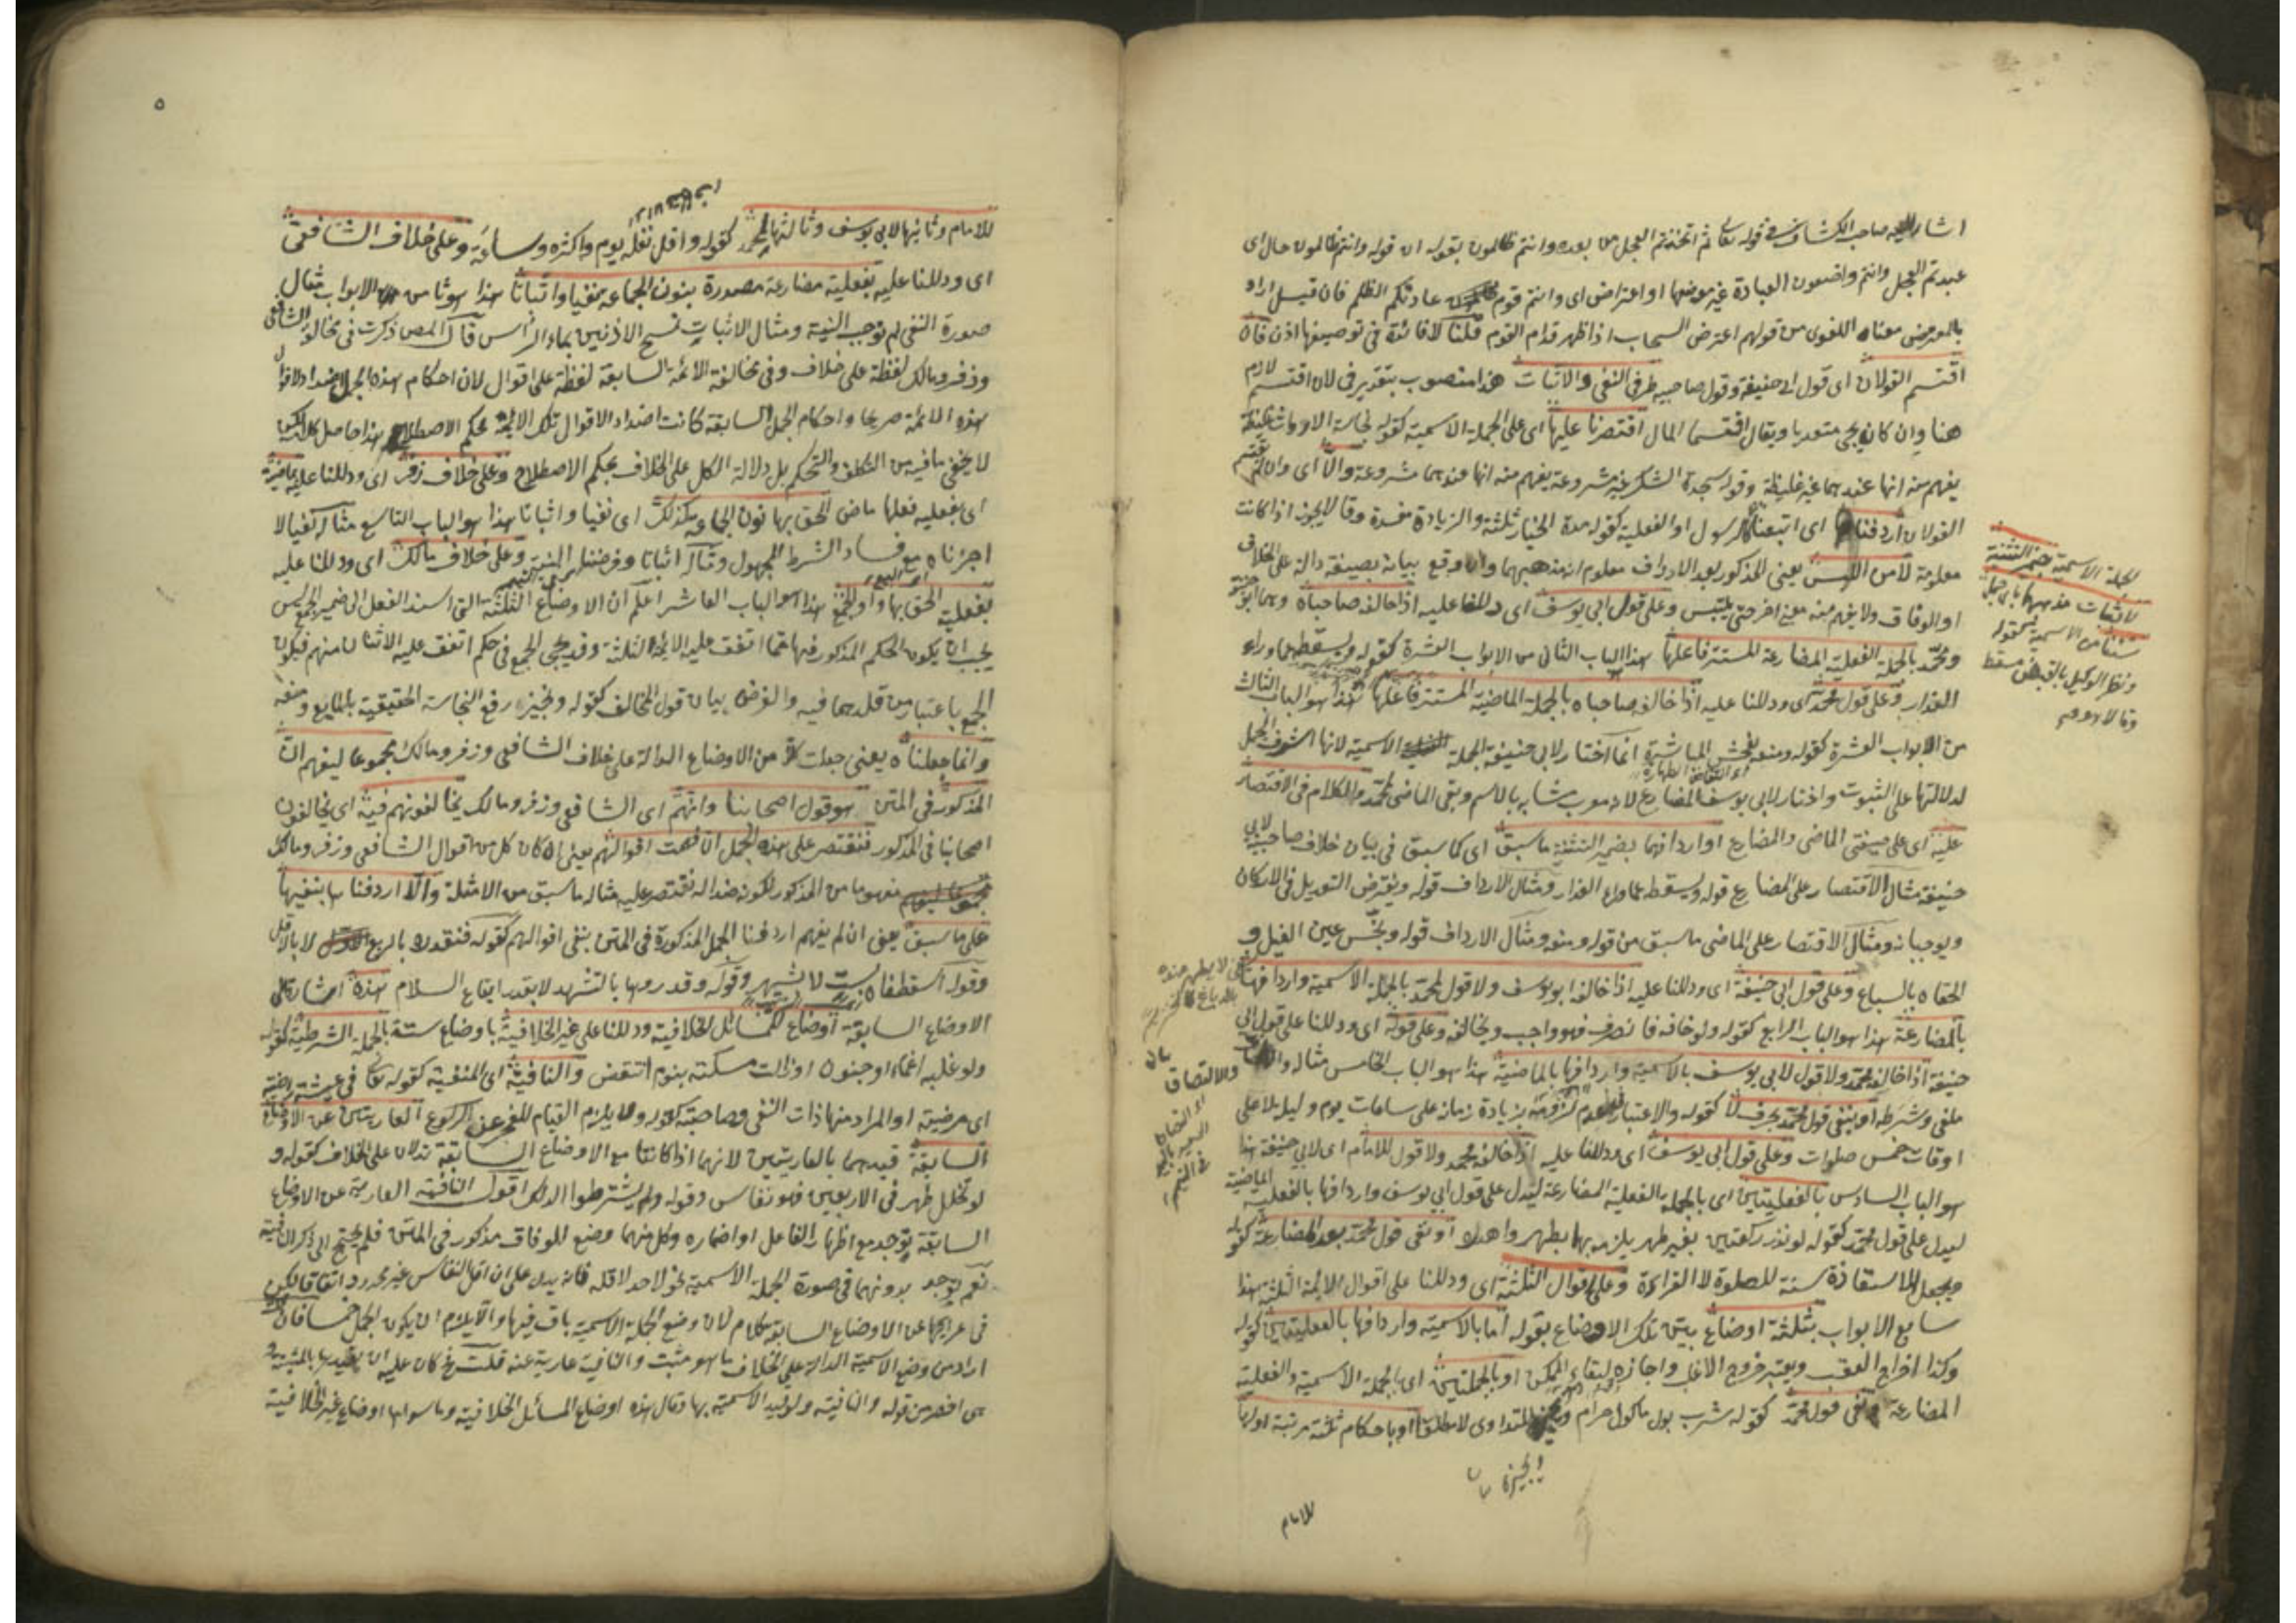 اشار اليه صاحب الكشاف فى قوله تعالى ثم اتخذتم العجل من بعده وانتم ظالمون بقوله ان قوله وانتم ظالمون حال اى
عبدتم العجل وانتم واضعون العبادة غير موضعها او اعتراض اى وانتم قوم عادتكم الظلم فان قيل اراد
بالمعترض معناه اللغوى من قولهم اعترض السحاب اذا ظهر قدام القوم قلنا لا فائدة فى توصيفها اذن فان
اقتسم القولان اى قول ابى حنيفة وقول صاحبيه طرفى النفى والاثبات هذا منصوب بتقدير فى لان اقتسم لازم
هنا وان كان يجئ متعديا ويقال اقتسما المال اقتصرنا عليها اى على الجملة الاسمية كقوله نجاسة الاوراث غليظة
يفهم منه انها عندهما غير غليظة وقوله سجدة الشكر غير مشروعة يفهم منه انها عندهما مشروعة والا اى وان لم يقتسم
القولان اردفنا اى اتبعنا او الفعلية كقوله مدة الخيار ثلثة والزيادة مفسدة وقالا يجوز اذا كانت
معلومة لامن اللبس يعنى المذكور بعد الارداف معلوم انه مذهبهما وان وقع بيانه بصيغة دالة على الخلاف
او الوفاق ولا يفهم منه معنى اخر حتى يلتبس وعلى قول ابى يوسف اى دللنا عليه اذا خالفه صاحباه وهما ابو حنيفة
ومحمد بالجملة الفعلية المضارعة المستتر فاعلها هذا الباب الثانى من الابواب العشرة كقوله ويسقط ما وراء
العذار وعلى قول محمد اى ودللنا عليه اذا خالفه صاحباه بالجملة الماضية المستتر فاعلها هذا هو الباب الثالث
من الابواب العشرة كقوله ومنعه بفحش المباشرة انما اختار لابى حنيفة الجملة الاسمية لانها اشرف الجمل
لدلالتها على الثبوت واختار لابى يوسف المضارع لانه معرب مشابه بالاسم وبقى الماضى لمحمد والكلام فى الاقتصار
عليه اى على صيغتى الماضى والمضارع او اردافهما بضمير التثنية ما سبق اى كما سبق فى بيان خلاف صاحبيه لابى
حنيفة مثال الاقتصار على المضارع قوله ويسقط ما وراء العذار ومثال الارداف قوله ويفترض التعديل فى الاركان
ويوجبانه ومثال الاقتصار على الماضى ما سبق من قوله ومنعه ومثال الارداف قوله ونجس عين الفيل و
الحقاه بالسباع وعلى قول ابى حنيفة اى ودللنا عليه اذا خالفه ابو يوسف ولا قول لمحمد بالجملة الاسمية واردافها
بالمضارعة هذا هو الباب الرابع كقوله ولو خافه فانصرف فهو واجب ويخالفه وعلى قوله اى ودللنا على قول ابى
حنيفة اذا خالفه محمد ولا قول لابى يوسف بالاسمية واردافها بالماضية هذا هو الباب الخامس مثاله
ملغى وشرطه او بنفى قول محمد بحرف لا كقوله والاعتبار فى عدم لزومه بزيادة زمانه على ساعات يوم وليلة لا على
اوقات خمس صلوات وعلى قول ابى يوسف اى ودللنا عليه اذا خالفه محمد ولا قول للامام اى لابى حنيفة هذا
هو الباب السادس بالفعليتين اى بالجملة بالفعلية المضارعة ليدل على قول ابى يوسف واردافها بالفعلية الماضية
ليدل على قول محمد كقوله لو نذر ركعتين بغير طهر يلزمه بها بطهر واهدره او نفى قول محمد بعد المضارعة كقوله
ويجعل الاستعاذة سنة للصلوة لا القراءة وعلى اقوال الثلثة اى ودللنا على اقوال الائمة الثلثة هذا
سابع الابواب بثلثة اوضاع بين تلك الاوضاع بقوله اما بالاسمية واردافها بالفعليتين كقوله
وكذا اخراج العقب ويعتبر خروج الاغلب واجازه لبقاء الممكن او بالجملتين اى بالجملة الاسمية والفعلية
المضارعة ونفى قول محمد كقوله شرب بول ماكول حرام للتداوى لا مطلقا او باحكام ثلثة مرتبة اولها
للامام
للامام وثانيها لابى يوسف وثالثها لمحمد كقوله واقل نفله يوم واكثره وساعة وعلى خلاف الشافعى
اى ودللنا عليه بفعلية مضارعة مصدرة بنون الجماعة نفيا واثباتا هذا هو ثامن الابواب مثال
صورة النفى لم نوجب النية ومثال الاثبات نمسح الاذنين بماء الراس قال المص ذكرت فى مخالفة الشافعى
وزفر ومالك لفظة على خلاف وفى مخالفة الائمة السابقة لفظة على اقوال لان احكام هذه الجمل اضداد لاقوال
هذه الائمة صريحا واحكام الجمل السابقة كانت اضداد الاقوال تلك الائمة بحكم الاصطلاح هذا حاصل كلامه لكن
لا يخفى ما فيه من التكلف والتحكم بل دلالة الكل على الخلاف بحكم الاصطلاح وعلى خلاف زفر اى ودللنا عليه بماضية
اى بفعلية فعلها ماض الحق بها نون الجماعة كذلك اى نفيا واثباتا هذا هو الباب التاسع مثاله نفيا لا
اجزناه مع فساد الشرط المجهول ومثاله اثباتا وفرضنا النية وعلى خلاف مالك اى ودللنا عليه
بفعلية الحق بها واو الجمع هذا هو الباب العاشر اعلم ان الاوضاع الثلثة التى اسند الفعل الى ضمير الجمع ليس
يجب ان يكون الحكم المذكور فيها مما اتفق عليه الائمة الثلثة وقد يجئ الجمع فى حكم اتفق عليه الاثنان منهم فيكون
الجمع باعتبار من قلدهما فيه والغرض بيان قول المخالف كقوله ونجيز رفع النجاسة الحقيقية بالمايع ومنعه
وانما جعلناه يعنى جعلت كلا من الاوضاع الدالة على خلاف الشافعى وزفر ومالك مجموعا ليفهم ان
المذكور فى المتن هو قول اصحابنا وانهم اى الشافعى وزفر ومالك يخالفونهم فيه اى يخالفون
اصحابنا فى المذكور فنقتصر على هذه الجمل ان فهمت اقوالهم يعنى ان كان كل من اقوال الشافعى وزفر ومالك
مفهوما من المذكور لكونه ضدا له نقتصر عليه مثاله ما سبق من الامثلة والا اردفنا ها بنفيها
على ما سبق يعنى ان لم يفهم اردفنا الجمل المذكورة فى المتن بنفى اقوالهم كقوله فنقدره بالربع لا بالاقل
وقوله اسقطناه لست لا شهر وقوله وقدروها بالتشهد لا بقدر ايقاع السلام هذه اشارة الى
الاوضاع السابقة اوضاع للمسائل الخلافية ودللنا على غير الخلافية باوضاع ستة بالجملة الشرطية كقوله
ولو غلبه اغماء او جنون او زالت مسكته بنوم انتقض والنافية اى المنفية كقوله تعالى فى عيشة راضية
اى مرضية او المراد منها ذات النفى وصاحبته كقوله ولا يلزم القيام للعجز عن الركوع العاريتين عن الاوضاع
السابقة قيدهما بالعاريتين لانهما اذا كانتا مع الاوضاع السابقة تدلان على الخلاف كقوله و
لو تخلل طهر فى الاربعين فهو نفاس وقوله ولم يشترطوا الدلك اقول النافية العارية عن الاوضاع
السابقة يوجد مع اظهار الفاعل او اضماره وكل منهما وضع للوفاق مذكور فى المتن فلم يحتج الى ذكر النافية
نعم يوجد بدونهما فى صورة الجملة الاسمية نحو لا حد لاقله فانه يدل على ان اقل النفاس غير محدود اتفاقا لكن
فى عرائها عن الاوضاع السابقة كلام لان وضع الجملة الاسمية باق فيها والا يلزم ان يكون الجمل خمسا فان
اراد من وضع الاسمية الدالة على الخلاف ما هو مثبت والنافية عارية عنه قلت كان عليه ان يقيدها بالمثبتة و
هى اخصر من قوله والنافية ولو قيد الاسمية بها وقال هذه اوضاع المسائل الخلافية وما سواها اوضاع غير الخلافية